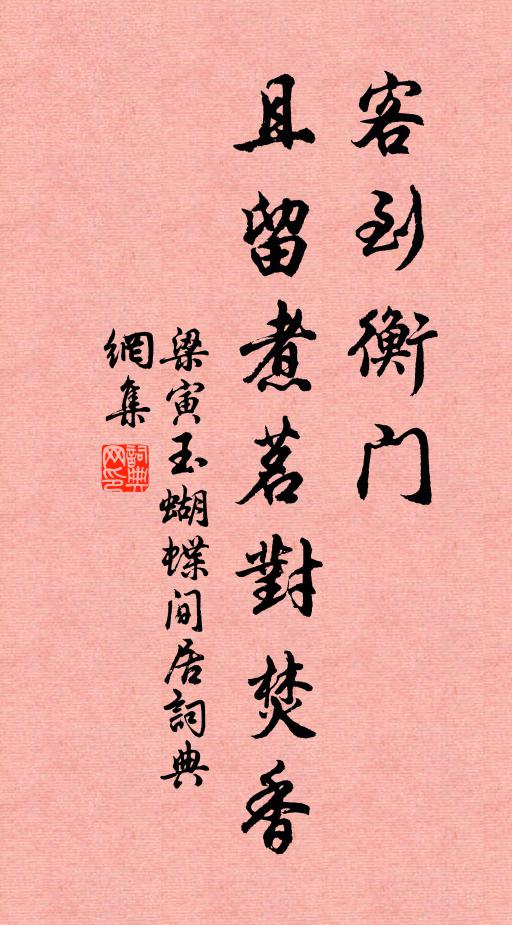 客到衡门
且留煮茗對焚香
梁寅玉蝴蝶间居詞典
網集
詞典
网印